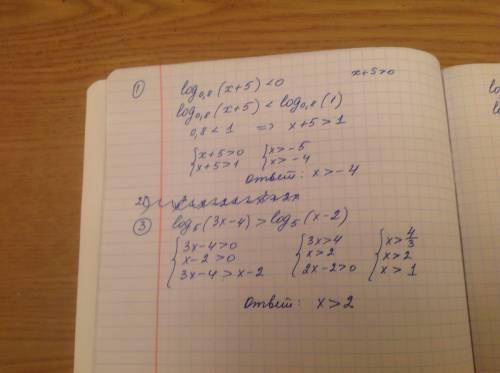 ① log₀,₈(x+5)<0 x+5>0
log₀,₈(x+5) < log₀,₈(1)
0,8<1 => x+5>1
{x+5>0 {x>-5
{x+5>1 {x>-4
ответ: x>-4
2)
③ log₅(3x-4)>log₅(x-2)
{3x-4>0 {3x>4 {x>4/3
{x-2>0 {x>2 {x>2
{3x-4>x-2 {2x-2>0 {x>1
Ответ: x>2